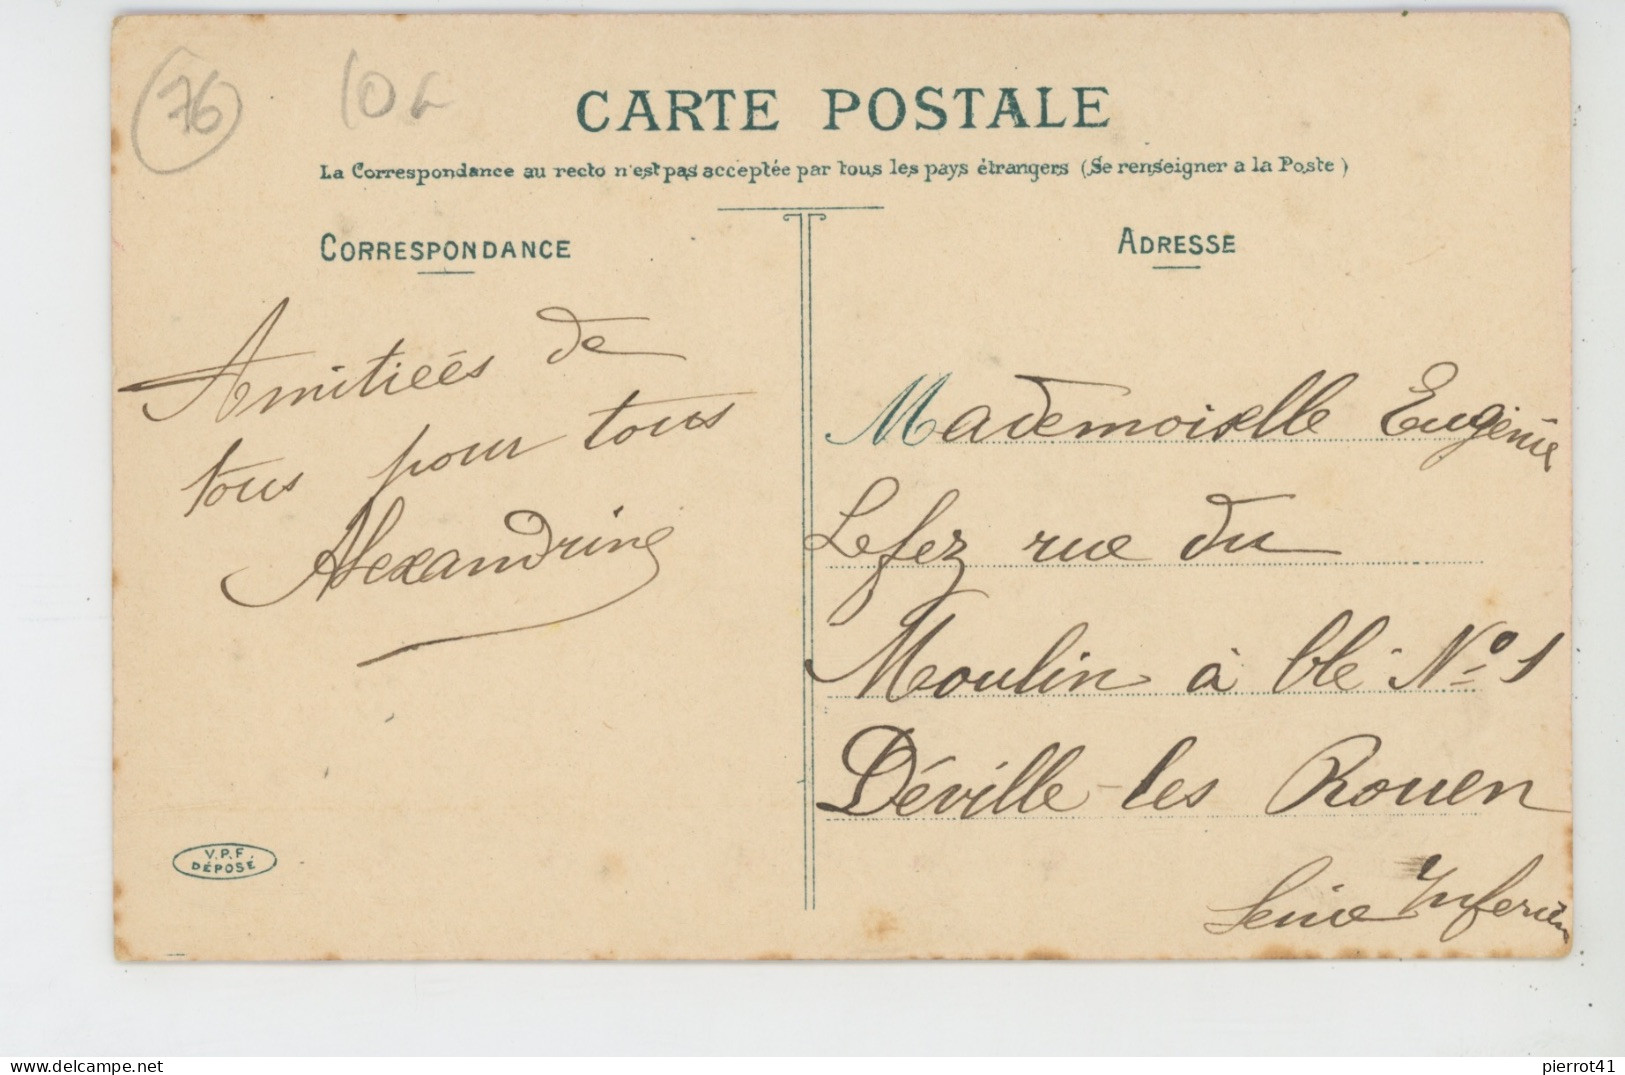 76
10
CARTE POSTALE
La Correspondance au recto n'est pas acceptée par tous les pays étrangers (Se renseigner a la Poste)
CORRESPONDANCE
Amitiéés de
tous pour tous
Alexandrine
V.P.F.
DÉPOSÉ
ADRESSE
Mademoiselle Eugénie
Lefez rue du
Moulin à blé Nº 1
Déville-les Rouen
Seine Inférieu
pierrot41